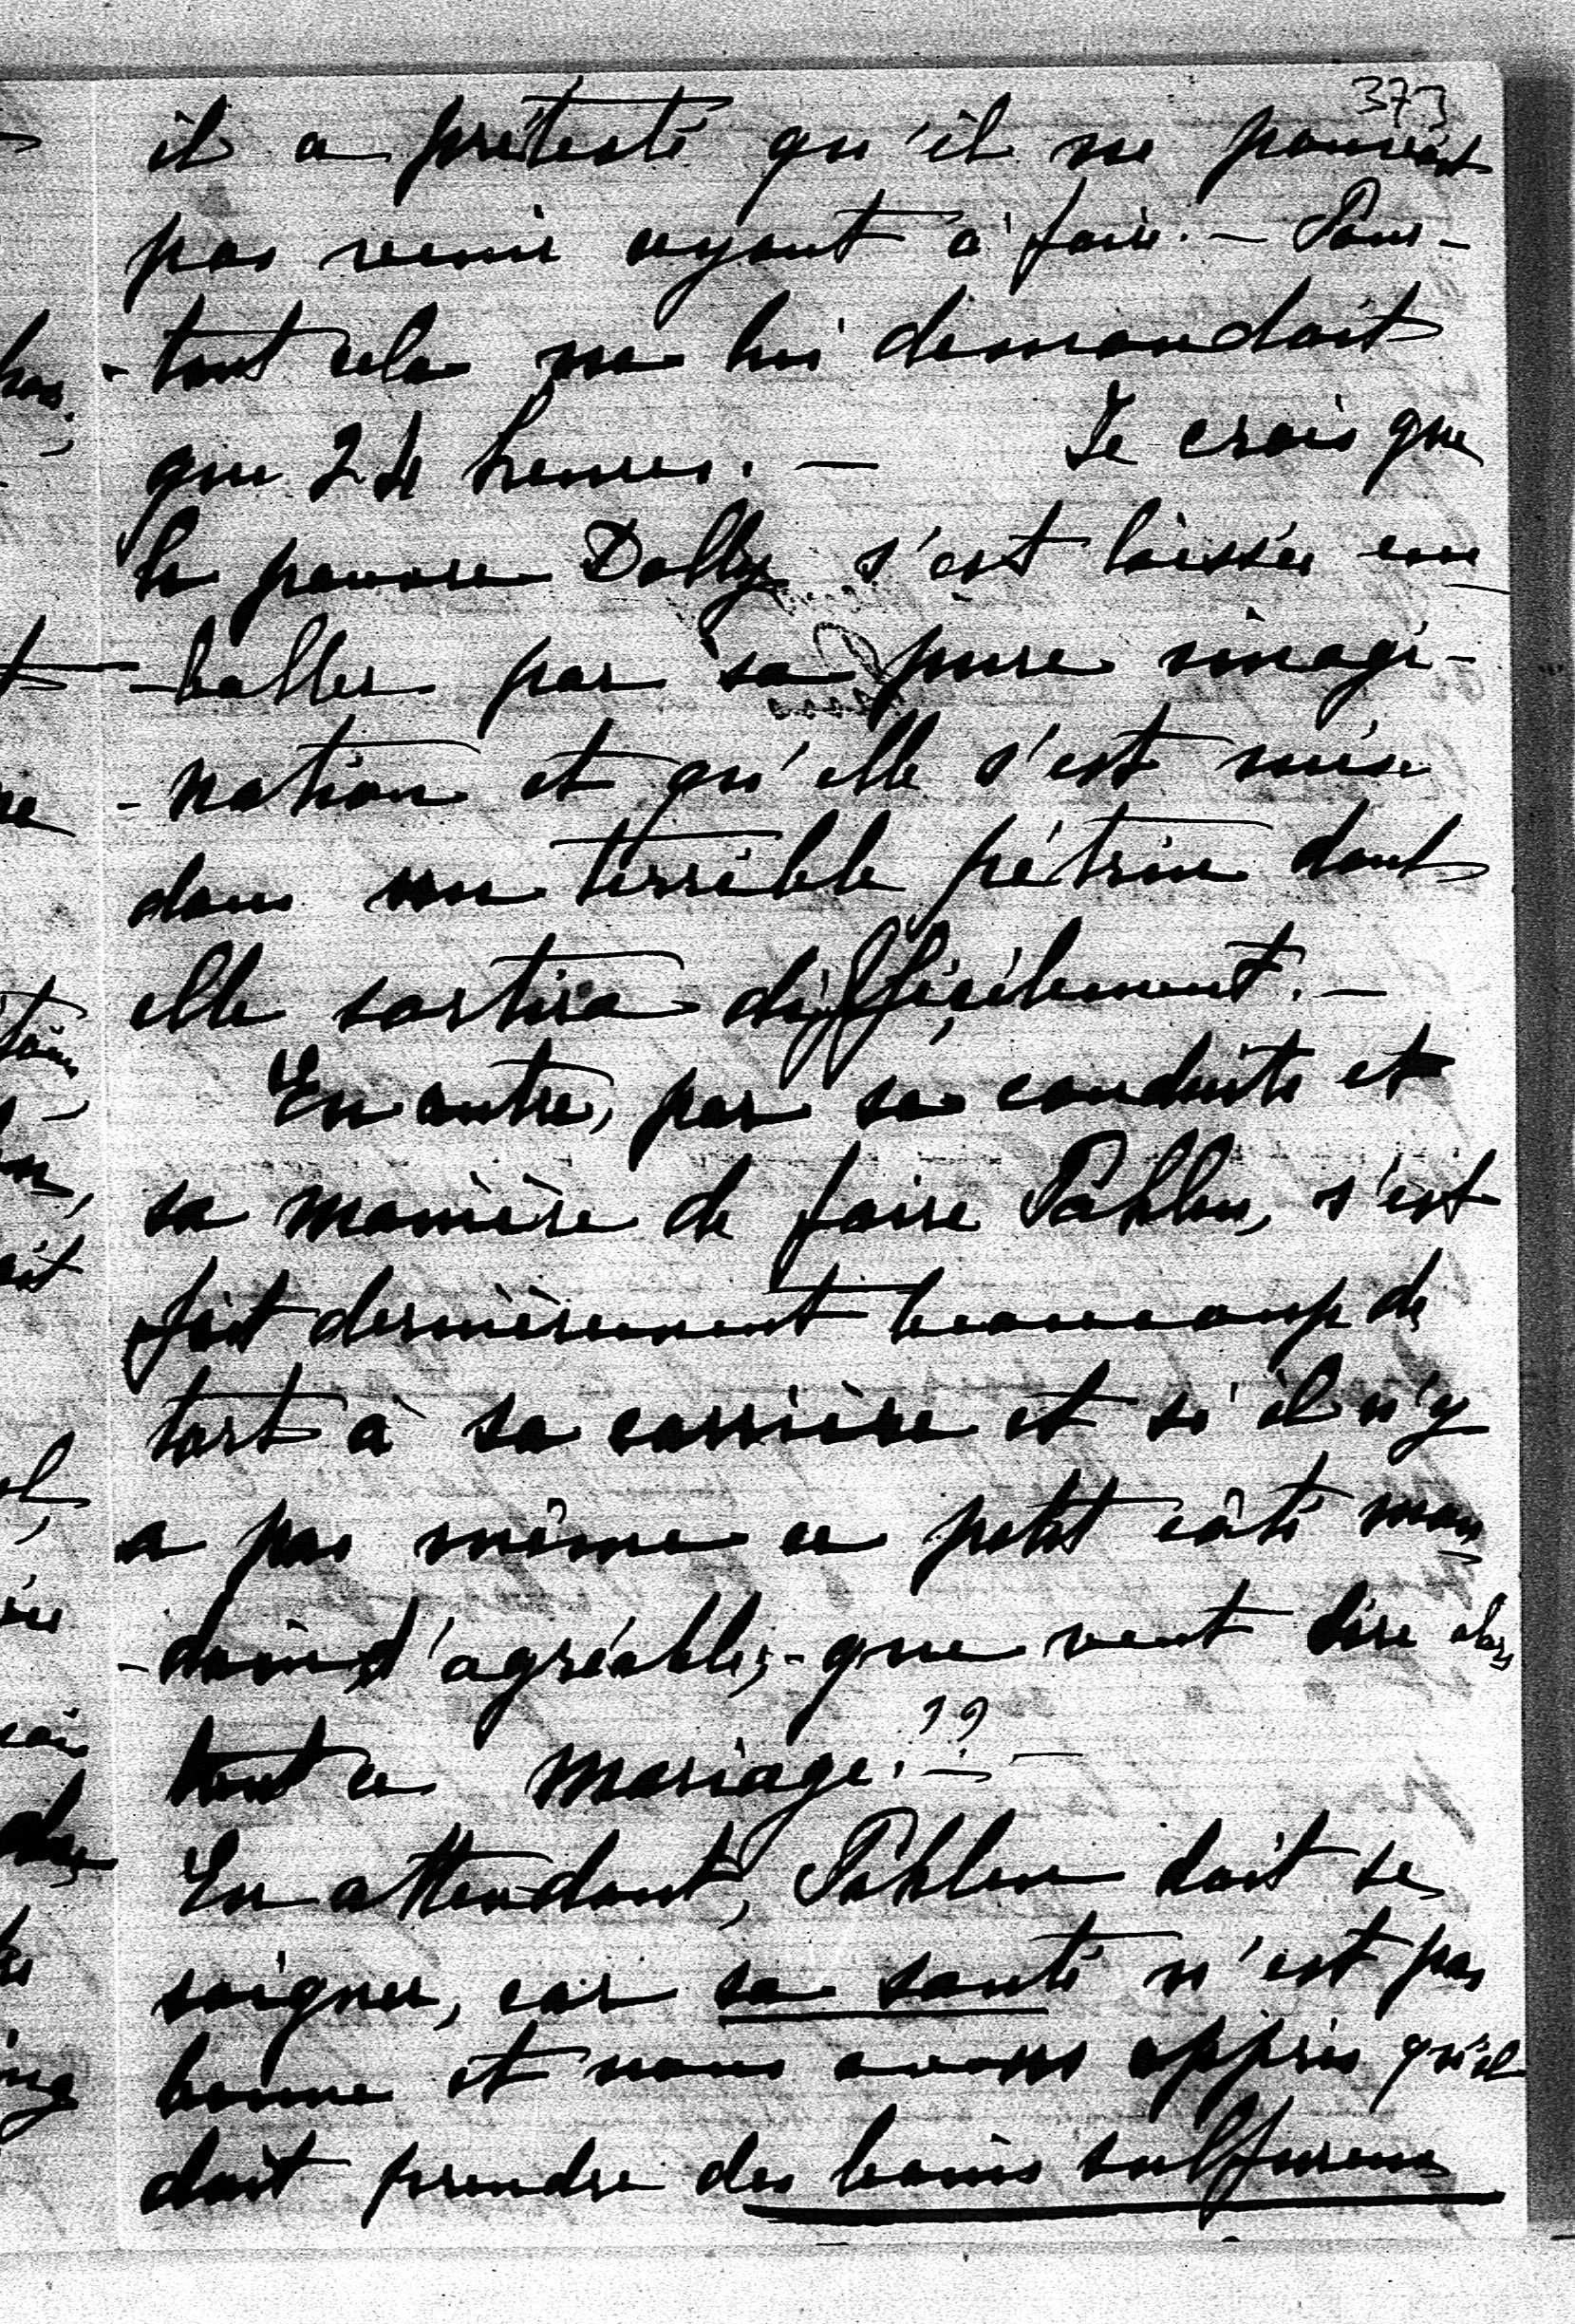 373
il a prétesté qu'il ne pouvait
pas venir ayant à faire. — Pour-
-tant cela ne lui demandait
que 24 heures. — Je crois que
la pauvre Dolly s'est laissée em
-baller par sa pure imagi-
-nation et qu'elle s'est mise
dans un terrible pétrin dont
elle sortira difficilement. —
En outre, par sa conduite et
sa manière de faire Pahlen, s'est
fait dernièrement beaucoup de
tort à sa carrière et si il n'y
a pas même ce petit côté mon
-dain d'agréable; - que veut dire alors
tout ce mariage?? —
En attendant, Pahlen doit se
soigner, car sa santé n'est pas
bonne et nous avons appris qu'il
doit prendre des bains sulfureux